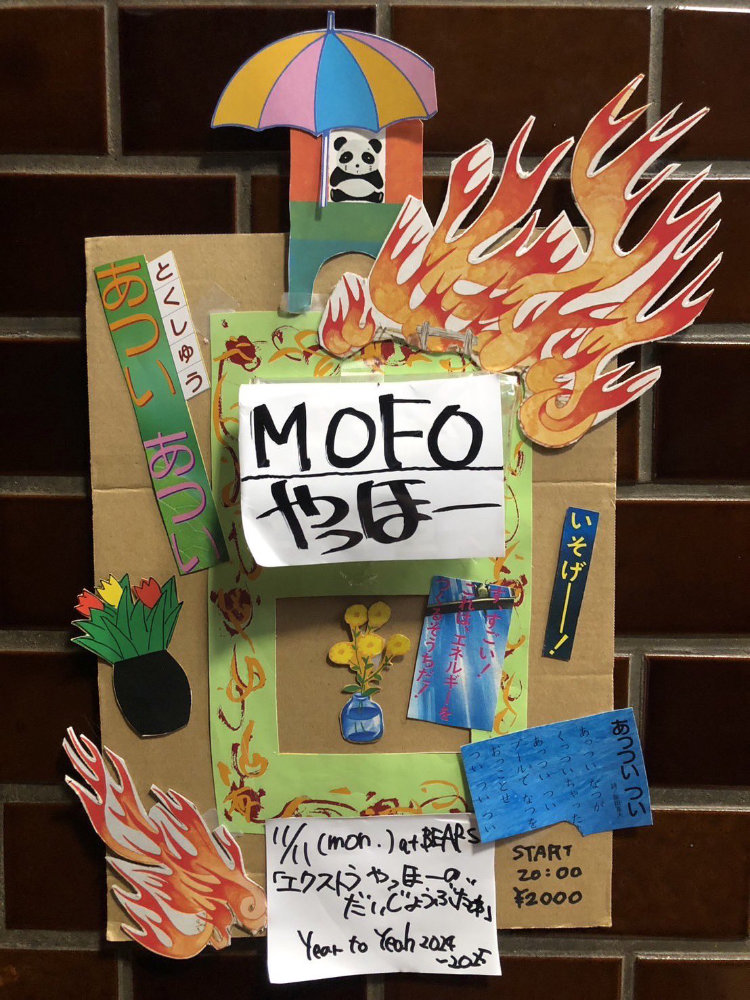 とくしゅう
あつい あつい
MOFO
やっほー
いそげーー!
す、すごい!
これは、エネルギーを
くるそうちだ!
あっつい つい
あっつい なつが
くっついちゃった
あっつい つい
プールで なつを
おっことせ
つい つい つい
11/11 (mon.) at BEARS
「エクストラやっほーの
だいじょうぶだぁ」
Year to Yeah 2024
-2025
START
20:00
¥2000